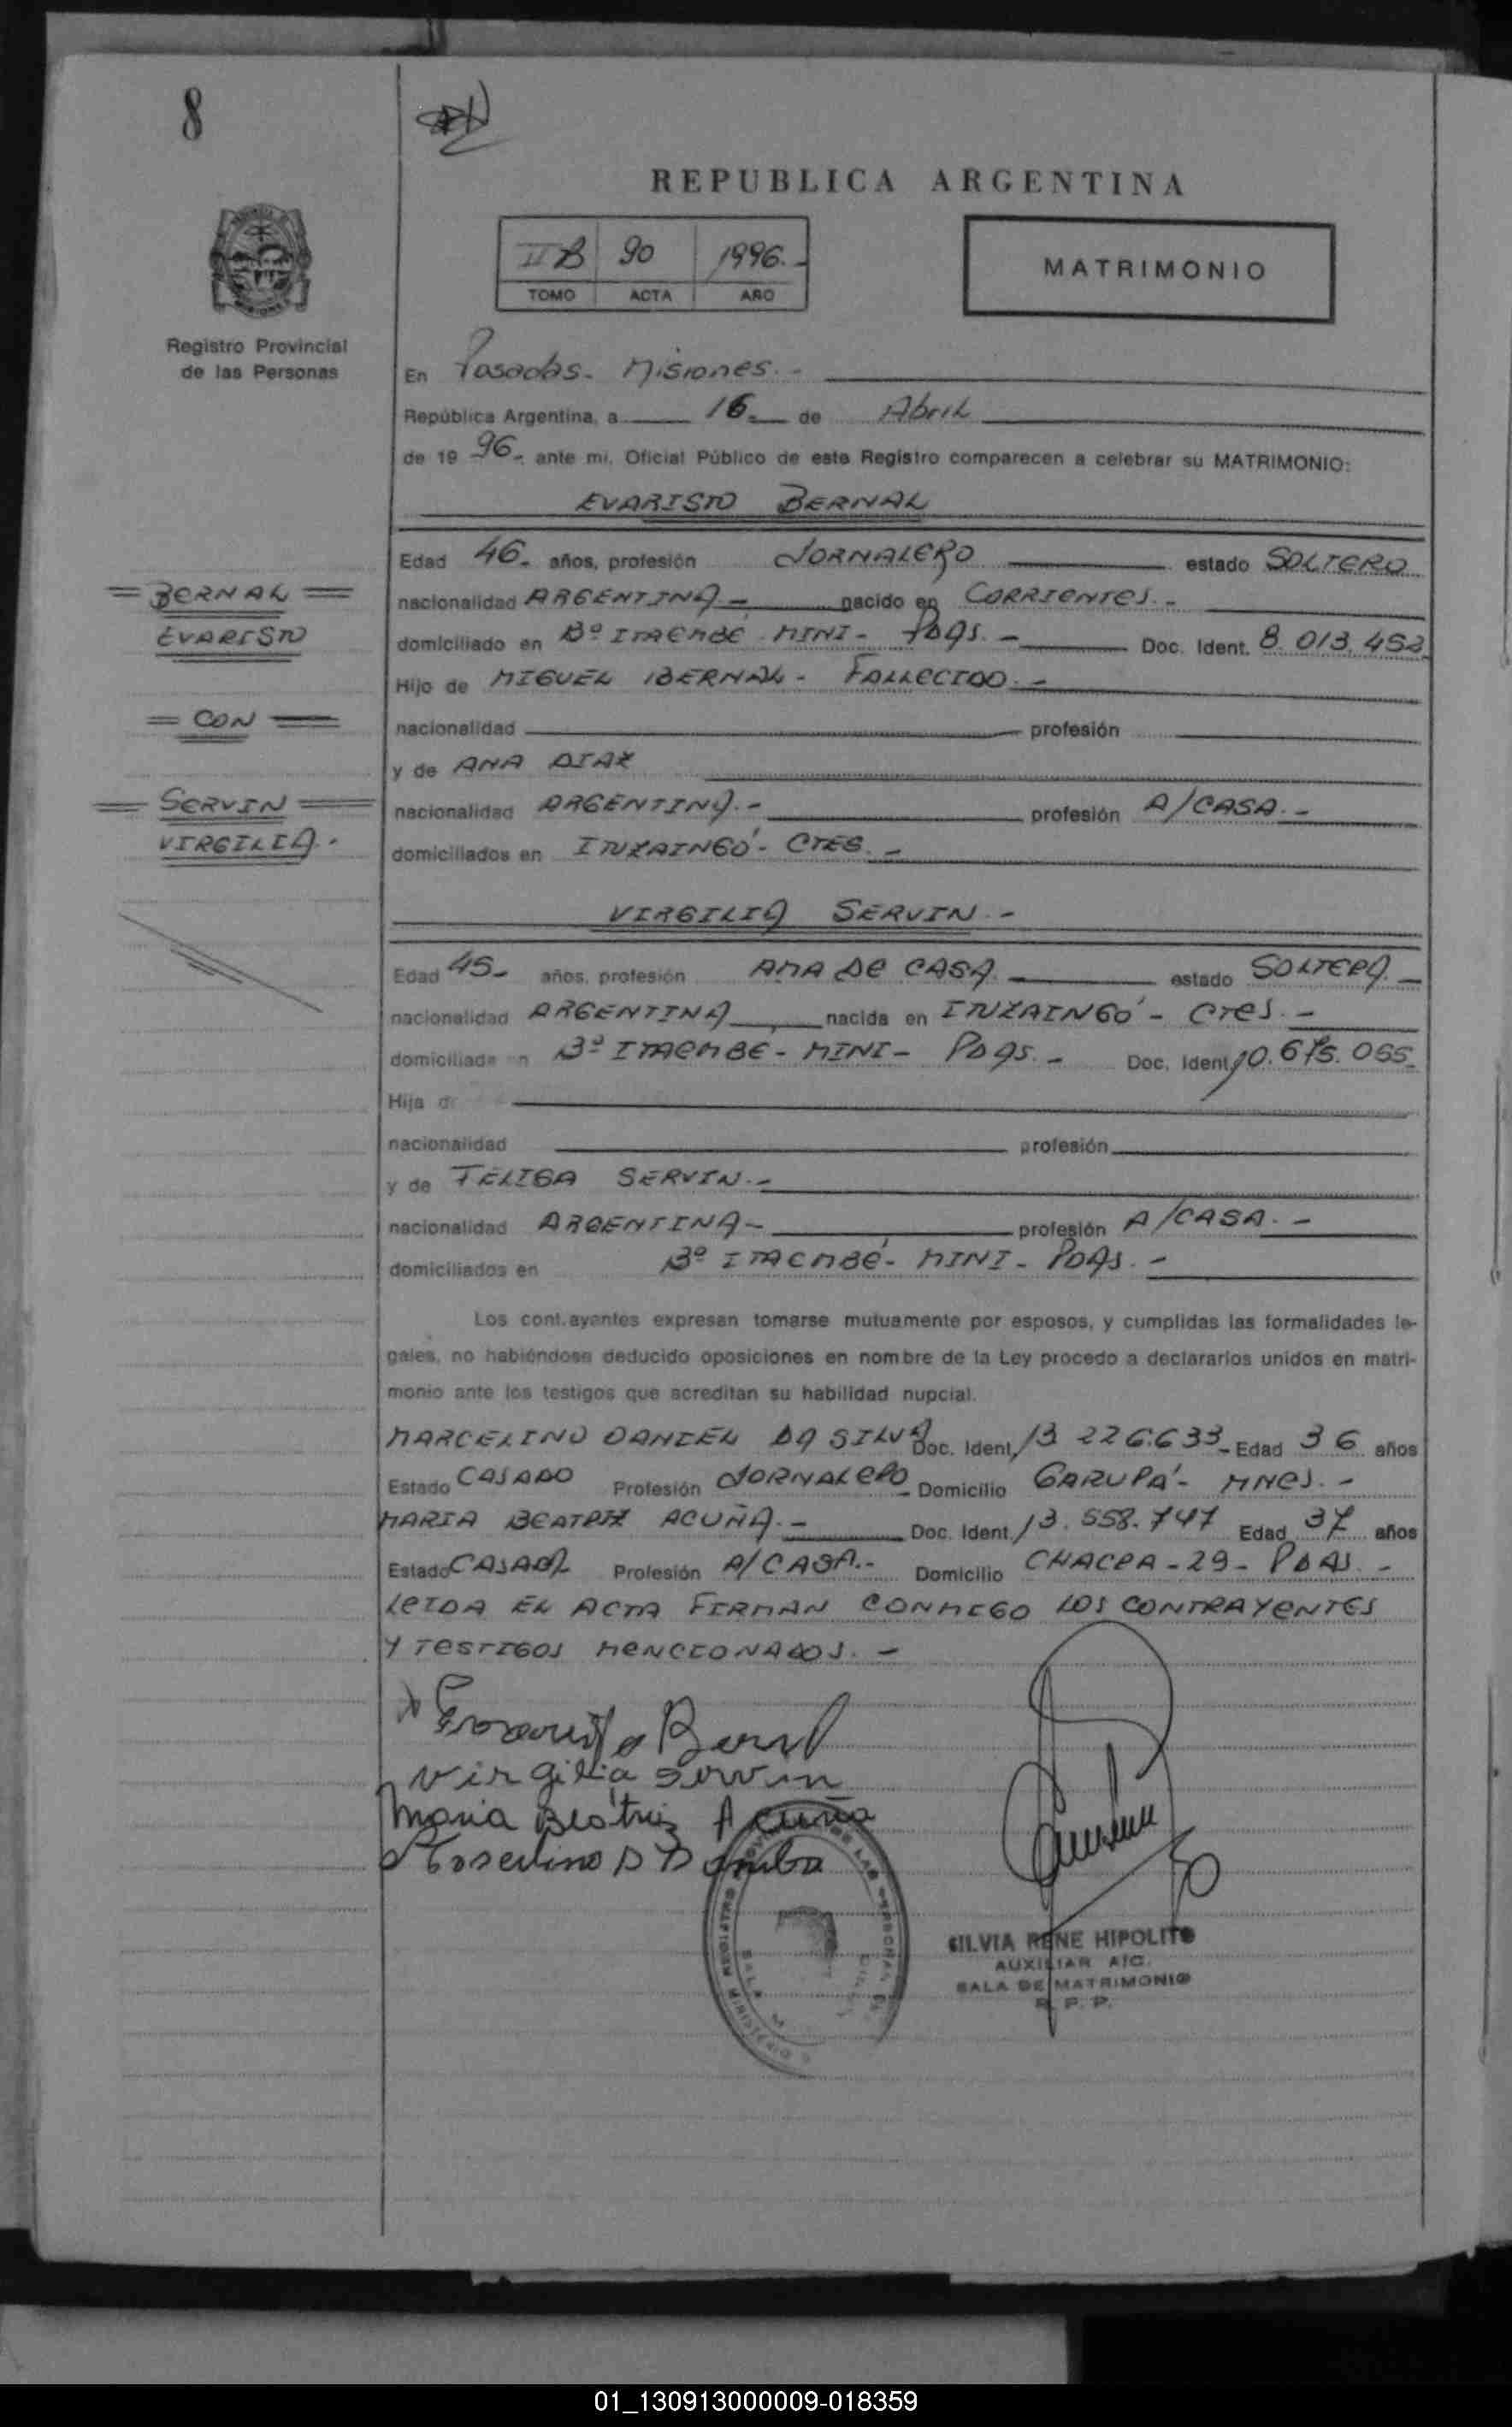 8
REPUBLICA ARGENTINA
IIB 90 1996.-
TOMO ACTA AÑO
MATRIMONIO
Registro Provincial
de las Personas
En Posadas - Misiones.-
República Argentina, a 16.- de Abril
de 19 96.- ante mi, Oficial Público de este Registro comparecen a celebrar su MATRIMONIO:
EVARISTO BERNAL
Edad 46.- años, profesión JORNALERO estado SOLTERO
nacionalidad ARGENTINA - nacido en CORRIENTES.-
domiciliado en Bº ITAEMBÉ - MINI - PDAS.- Doc. Ident. 8.013.452
Hijo de MIGUEL BERNAL - FALLECIDO.-
nacionalidad profesión
y de ANA DIAZ
nacionalidad ARGENTINA.- profesión A/CASA.-
domiciliados en ITUZAINGÓ - CTES.-
= BERNAL =
EVARISTO
= CON =
= SERVIN =
VIRGILIA.-
VIRGILIA SERVIN.-
Edad 45- años, profesión AMA DE CASA.- estado SOLTERA.-
nacionalidad ARGENTINA nacida en ITUZAINGÓ - CTES.-
domiciliada en Bº ITAEMBÉ - MINI - PDAS.- Doc. Ident. 10.675.055-
Hija de
nacionalidad profesión
y de FELISA SERVIN.-
nacionalidad ARGENTINA- profesión A/CASA.-
domiciliados en Bº ITAEMBÉ - MINI - PDAS.-
Los contrayentes expresan tomarse mutuamente por esposos, y cumplidas las formalidades le-
gales, no habiéndose deducido oposiciones en nombre de la Ley procedo a declararlos unidos en matri-
monio ante los testigos que acreditan su habilidad nupcial.
MARCELINO DANIEL DA SILVA Doc. Ident. 13.226.633- Edad 36 años
Estado CASADO Profesión JORNALERO Domicilio GARUPÁ - MNES.-
MARIA BEATRIZ ACUÑA.- Doc. Ident. 13.558.747 Edad 37 años
Estado CASADA Profesión A/CASA.- Domicilio CHACRA - 29 - PDAS.-
LEIDA EL ACTA FIRMAN CONMIGO LOS CONTRAYENTES
Y TESTIGOS MENCIONADOS.-
Evaristo Bernal
Virgilia Servin
Maria Beatriz Acuña
SILVIA RENE HIPOLITO
AUXILIAR A/C.
SALA DE MATRIMONIO
R. P. P.
01_130913000009-018359